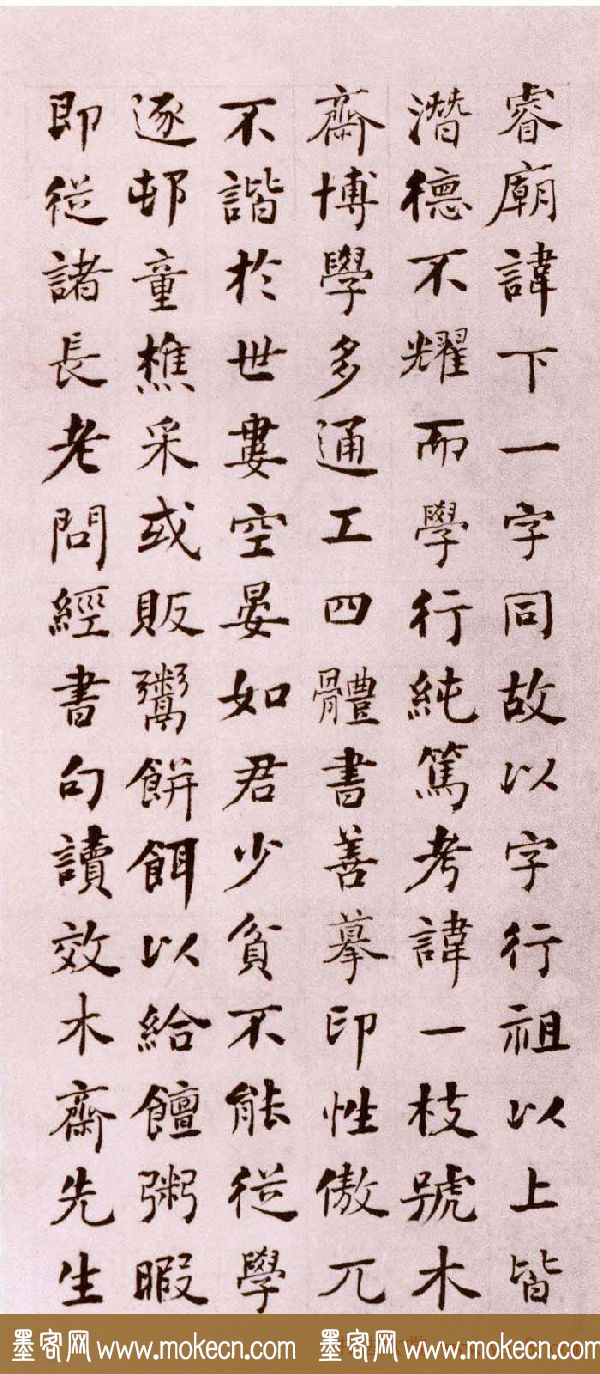 睿廟諱下一字同故以字行祖以上皆
潛德不耀而學行純篤考諱一枝號木
齋博學多通工四體書善摹印性傲兀
不諧於世婁空晏如君少貧不能從學
逐邨童樵采或販鬻餅餌以給饘粥暇
即從諸長老問經書句讀效木齋先生
墨客网 www.mokecn.com 墨客网 www.mokecn.com